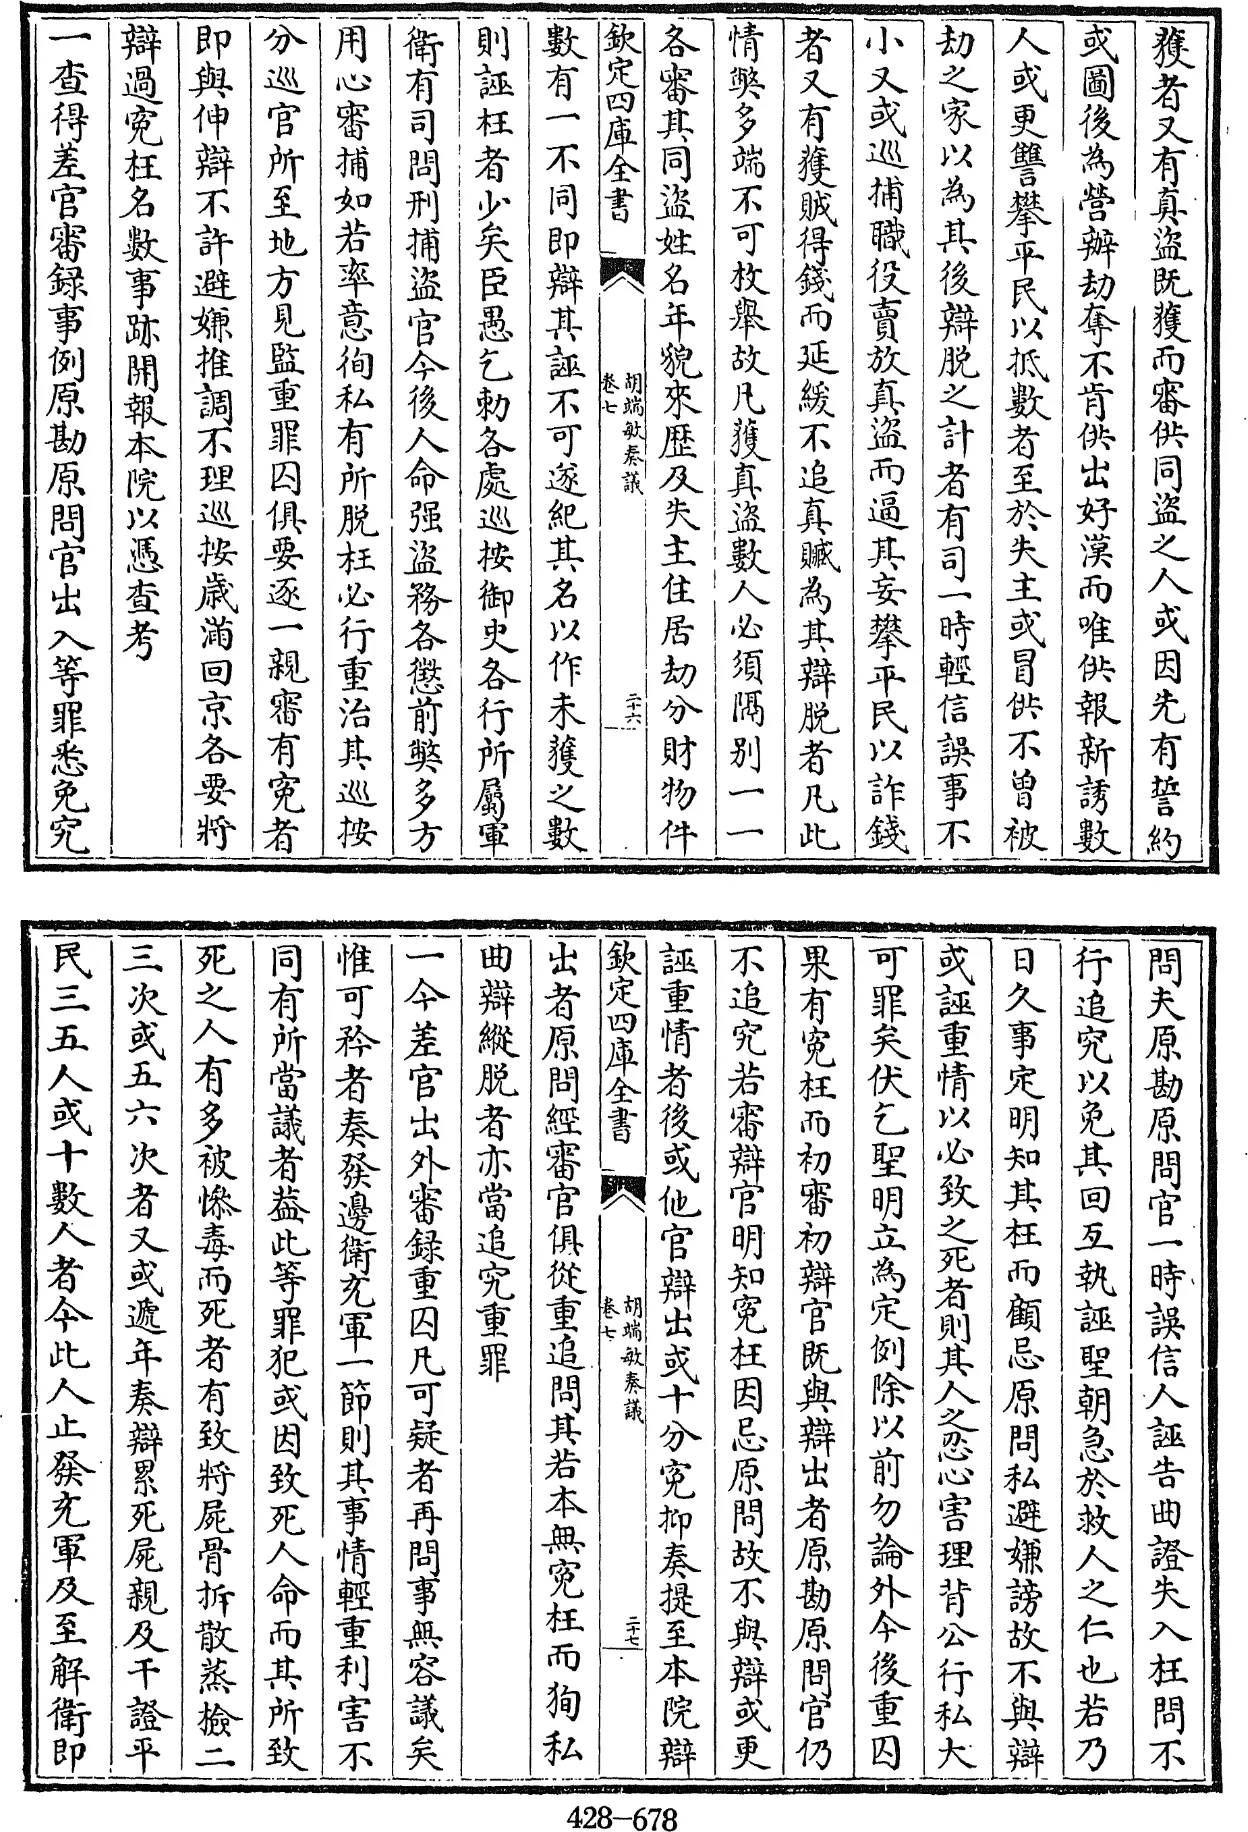 獲者又有真盜既獲而審供同盜之人或因先有誓約
或圖後為營辦劫奪不肯供出好漢而唯供報新誘數
人或更讐攀平民以抵數者至於失主或冒供不曽被
劫之家以為其後辯脱之計者有司一時輕信誤事不
小又或巡捕職役賣放真盜而逼其妄攀平民以詐錢
者又有獲賊得錢而延緩不追真贓為其辯脱者凡此
情獘多端不可枚舉故凡獲真盜數人必須隔别一一
各審其同盜姓名年貌來歴及失主住居劫分財物件
欽定四庫全書
胡端敏奏議
卷七
二十六
數有一不同即辯其誣不可遂紀其名以作未獲之數
則誣枉者少矣臣愚乞勅各處巡按御史各行所屬軍
衛有司問刑捕盜官今後人命强盜務各懲前獘多方
用心審捕如若率意徇私有所脱枉必行重治其巡按
分巡官所至地方見監重罪囚俱要逐一親審有寃者
即與伸辯不許避嫌推調不理巡按歲滿回京各要將
辯過寃枉名數事跡開報本院以憑查考
一查得差官審録事例原勘原問官出入等罪悉免究
問夫原勘原問官一時誤信人誣告曲證失入枉問不
行追究以免其回互執誣聖朝急於救人之仁也若乃
日久事定明知其枉而顧忌原問私避嫌謗故不與辯
或誣重情以必致之死者則其人之忍心害理背公行私大
可罪矣伏乞聖明立為定例除以前勿論外今後重囚
果有寃枉而初審初辯官既與辯出者原勘原問官仍
不追究若審辯官明知寃枉因忌原問故不與辯或更
誣重情者後或他官辯出或十分寃抑奏提至本院辯
欽定四庫全書
胡端敏奏議
卷七
二十七
出者原問經審官俱從重追問其若本無寃枉而狥私
曲辯縱脱者亦當追究重罪
一今差官出外審録重囚凡可疑者再問事無容議矣
惟可矜者奏發邊衛充軍一節則其事情輕重利害不
同有所當議者葢此等罪犯或因致死人命而其所致
死之人有多被慘毒而死者有致將屍骨拆散蒸檢二
三次或五六次者又或遞年奏辯累死屍親及干證平
民三五人或十數人者今此人止發充軍及至解衛即
428-678